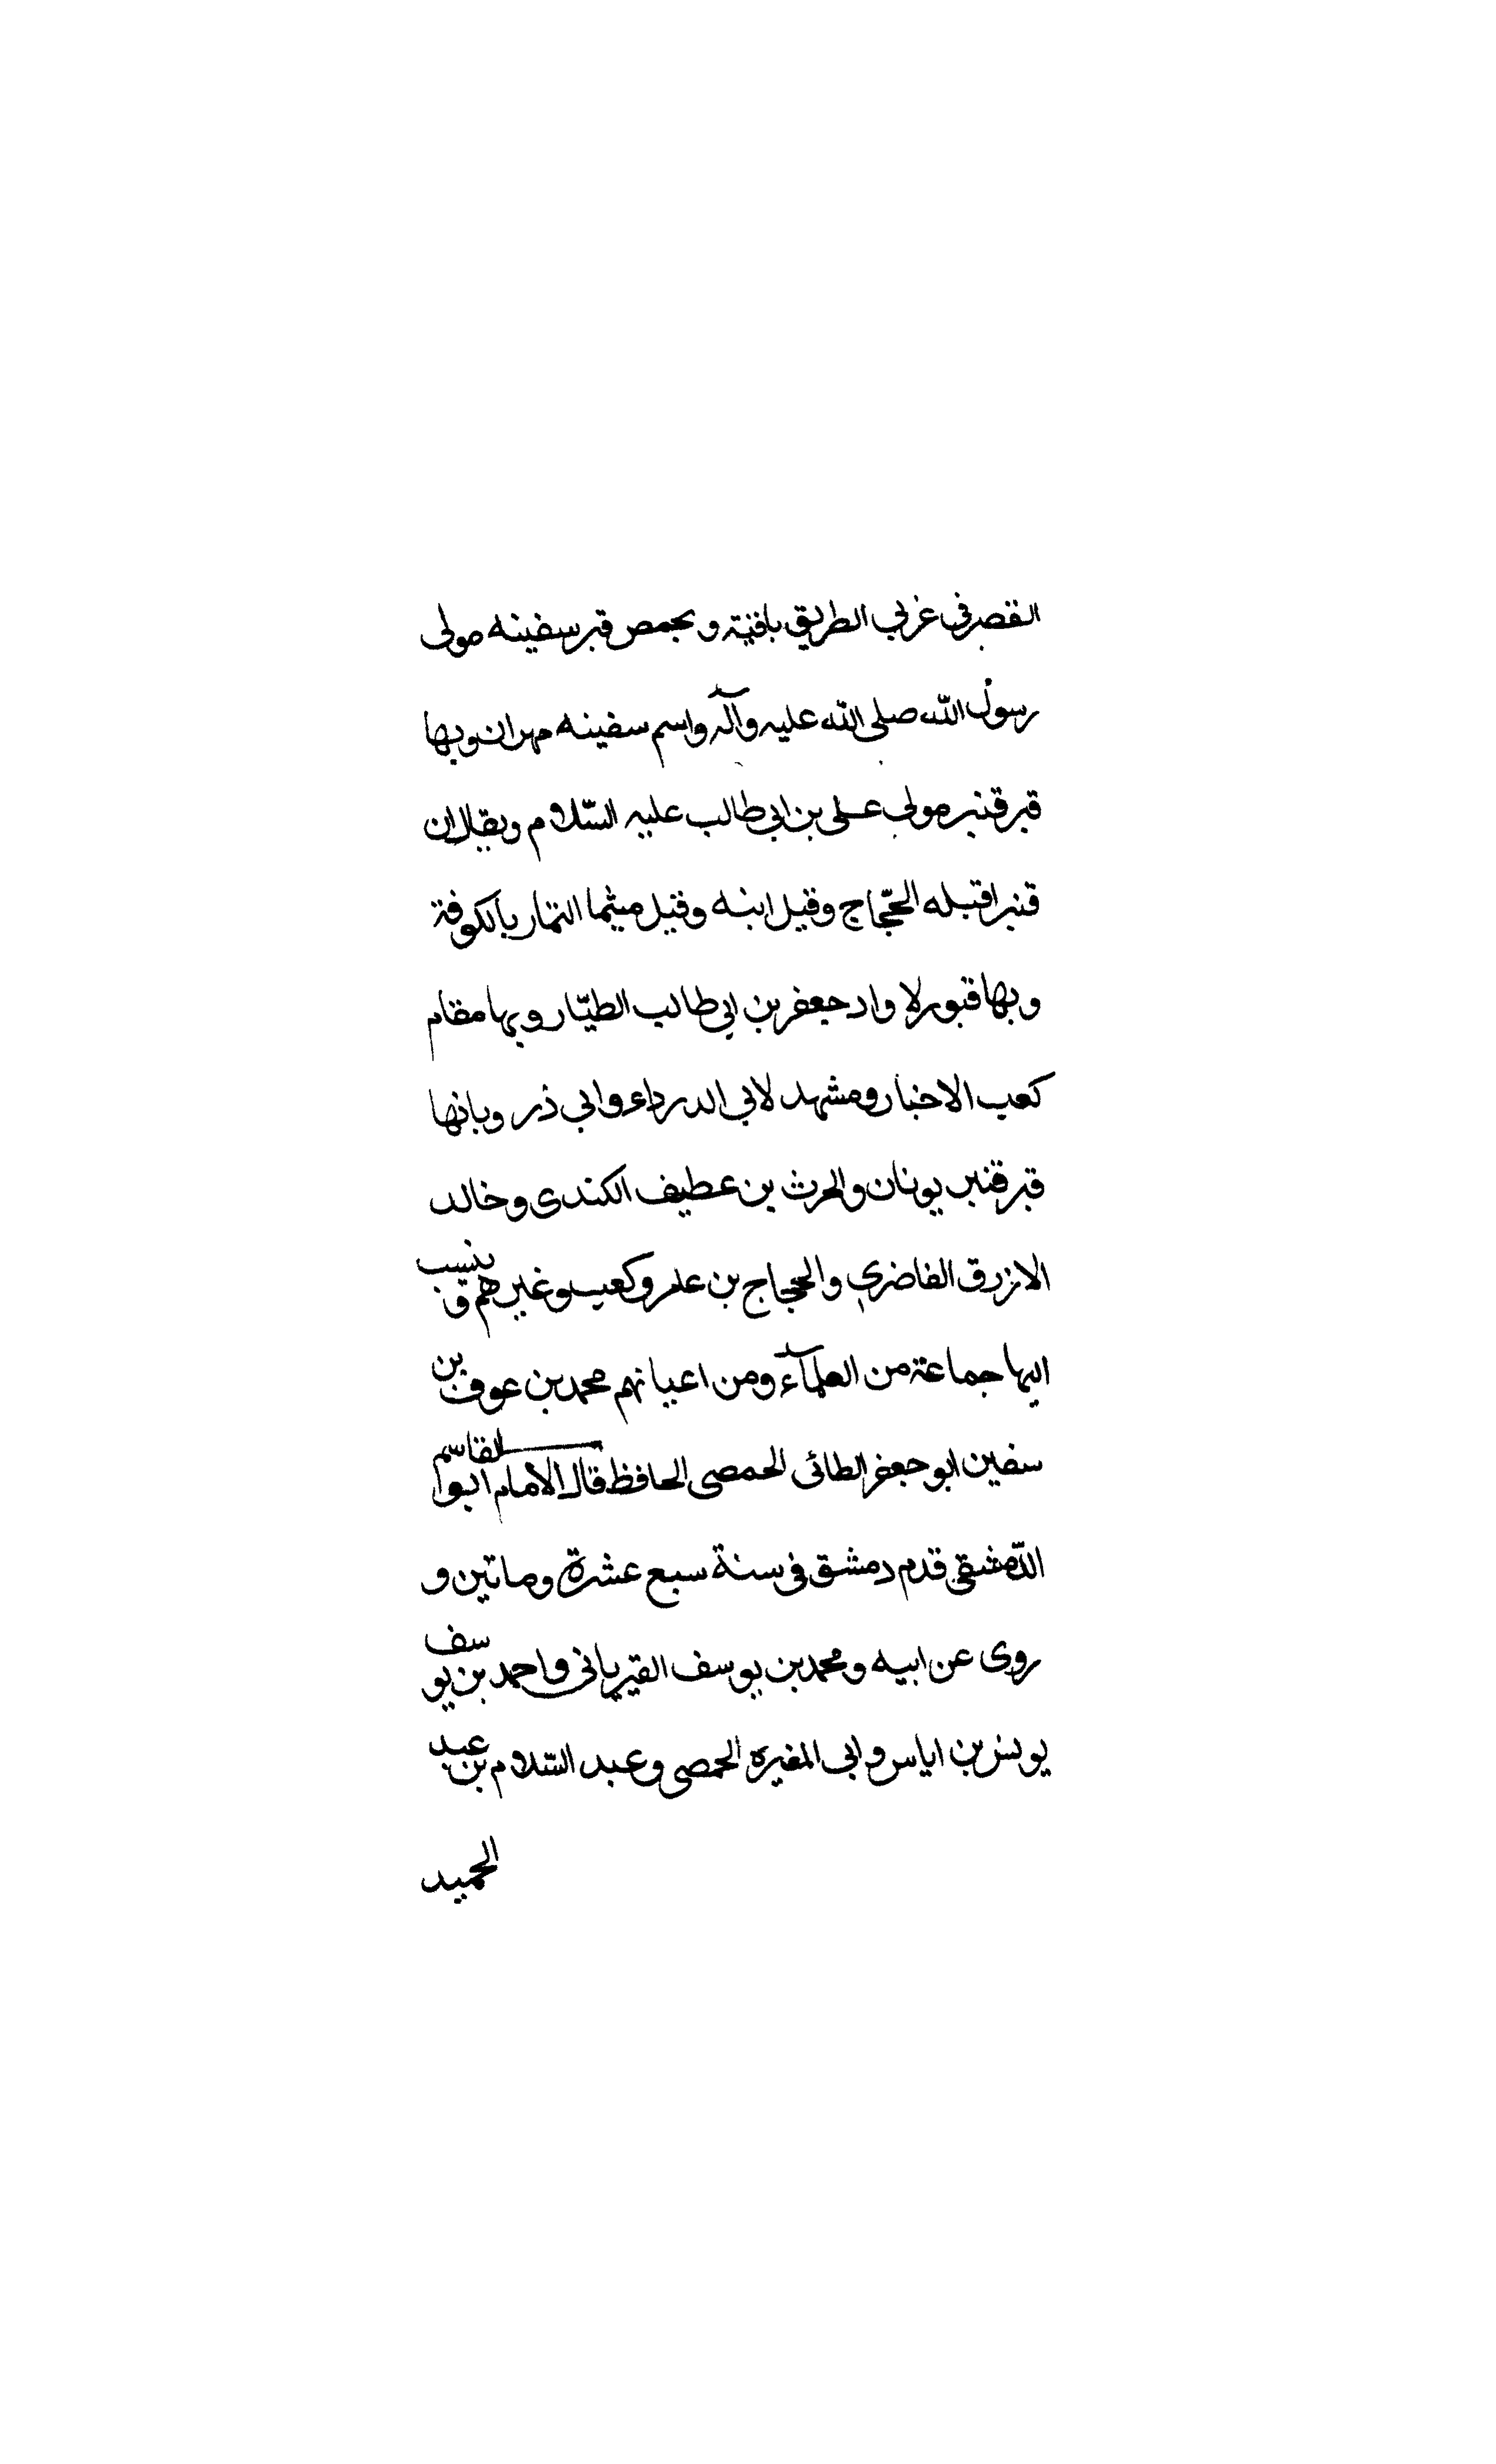 القصر في غربي الطريق باقية و بحمص قبر سفينه مولى
رسول الله صلى الله عليه وآله واسم سفينه مهران وبها
قبر قنبر مولى على بن ابي طالب عليه السّلام ويقال ان
قنبرا قتله الحجّاج وقتل ابنه وقتل ميثما التمّار بالكوفة
وبها قبور لاولاد جعفر بن ابي طالب الطيّار وبها مقام
كعب الاخبار ومشهد لابي الدرداء وابي ذر وبانها
قبر قنبر يونان والحرث بن عطيف الكندى وخالد
الازرق الفاضري والحجاج بن عامر وكعب وغيرهم وينسب
اليها جماعة من العلمآء ومن اعيانهم محمد بن عوف بن
سفين ابو جعفر الطائى الحمصى الحافظ قال الامام ابو القاسم
الدّمشقى قدم دمشق فى سنة سبع عشرة وماتين و
روى عن ابيه ومحمد بن يوسف القيريانى واحمد بن يوسف
يونس بن اياس وابى المغيرة الحمصى وعبد السّلام بن عبد
الحميد